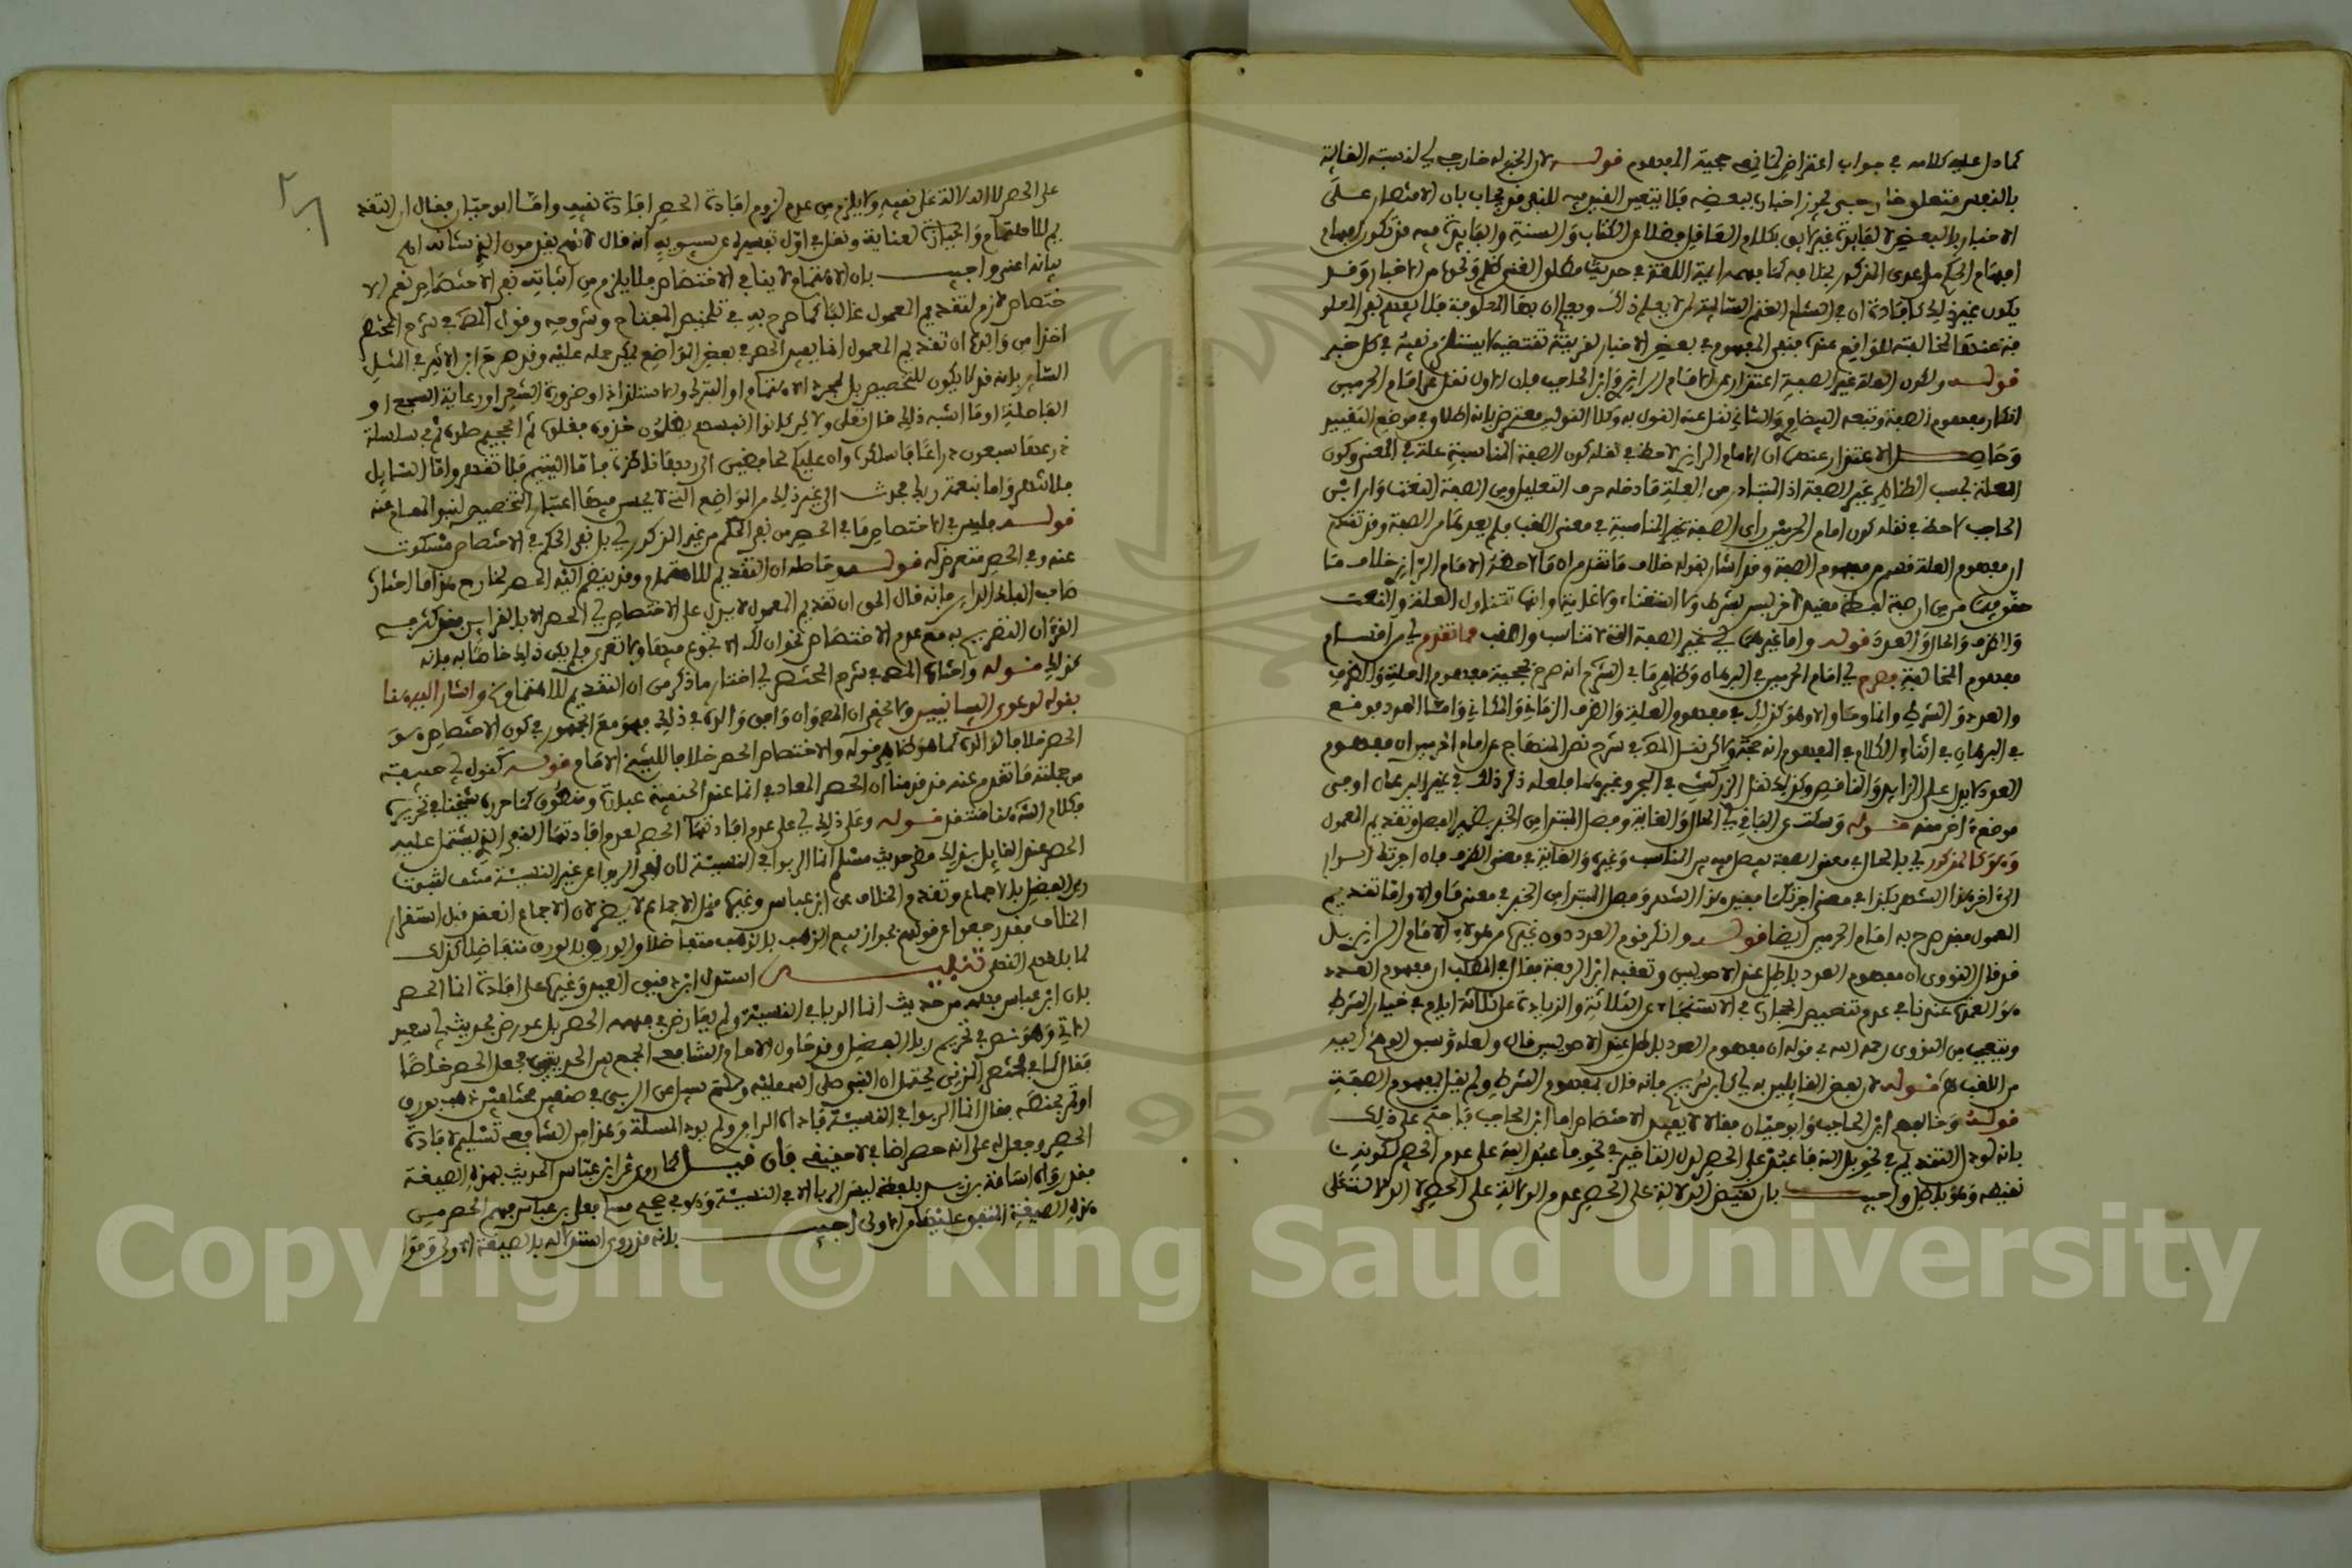 كما دل عليه كلامه في جواب اعتراض لنا في حجية المفهوم قوله لان الخبر له خارجي اي لنسبته القائمة
بالنفس متعلق خارجي يجوز اخباره ببعضه فلا يتعين القيد فيه للنفي قد يجاب بان الاقتصار على
الاخبار بالبعض لا لفايدة غير لايق بكلام العاقل فضلا عن الكتاب والسنة والفايدة فيه قد تكون
يكون غير ذلك كافادة ان في الشام الغنم السايمة لمن لا يعلم ذلك
قوله وكون العلة غير الصفة اعتذار عن الامام الرازي وابن الحاجب فان الاول نقل عن امام الحرمين
انكار مفهوم الصفة وتبعه البيضاوي والثاني نقل عنه القول به وكلا النقلين معترض بانه اطلاق في موضع التقييد
وحاصل الاعتذار عنهما ان الامام الرازي لاحظ في نقله كون الصفة المناسبة علة في المعنى وكون
العلة بحسب الظاهر غير الصفة اذ المتبادر من العلة ما دخله حرف التعليل ومن الصفة النعت وان ابن
الحاجب لاحظ في نقله كون امام الحرمين رأى الصفة غير المناسبة في معنى اللقب فلم يعدها من الصفة وقد تقدم
ان مفهوم العلة قسم من مفهوم الصفة وقد اشار بقوله خلاف ما تقدم ان ما لاحظه الامام الرازي خلاف ما
حققوه من ان صفة لفظ مقيد لاخر ليس بشرط ولا استثناء ولا غاية وانها تتناول العلة والنعت
والظرف والحال والعدد قوله واما غيرها اي غير الصفة التي لا تناسب واللقب مما تقدم اي من اقسام
مفهوم المخالفة فصرح اي امام الحرمين في البرهان وظاهر ما في الشرح انه صرح بحجية مفهوم العلة والظرف
والعدد والشرط وانما وما والا وهو كذلك في مفهوم العلة والظرف الزماني والمكاني واما العدد فوقع
في البرهان في اثناء الكلام في المفهوم انه حجة ولكن نقل المص في شرح المنهاج عن امام الحرمين ان مفهوم
العدد لا يدل على الزايد والناقص وكذلك نقل الزركشي في البحر وغيره عنه فلعله ذكر ذلك في غير البرهان او في
موضع اخر منه قوله وسكت عن الباقي اي الحال والغاية وفصل المبتدا من الخبر بضمير الفصل وتقديم المعمول
وهو كالمذكور اي فالحال في معنى الصفة يفصل فيه بين المناسب وغيره والغاية في معنى الظرف
الى اخر هذا الشهر وفصل المبتدا من الخبر في معنى ما والا واما تقديم
المعمول فقد صرح به امام الحرمين ايضا قوله وانكر قوم العدد دون غيره من هؤلاء الامام الرازي بل
قد قال النووي ان مفهوم العدد باطل عند الاصوليين وتعقبه ابن الرفعة فقال في المطلب ان مفهوم العدد
هو العمدة عندنا في عدم تنقيص الحجارة في الاستنجاء عن الثلاثة والزيادة على ثلاثة ايام في خيار الشرط
ويتعجب من النووي رحمه الله في قوله ان مفهوم العدد باطل عند الاصوليين قال ولعله سبق الوهم اليه
من اللقب قوله لان بعض القايلين به اي كابن سريج فانه قال بمفهوم الشرط ولم يقل بمفهوم الصفة
قوله وخالفهم ابن الحاجب وابو حيان فقالا لا يفيد الاختصاص اما ابن الحاجب فاحتج على ذلك
بانه لو دل التقديم في نحو بل الله فاعبد على الحصر لدل التاخير في نحو فاعبد الله على عدم الحصر لكونه
نقيضه وهو باطل واجيب بان نقيض الدلالة على الحصر عدم الدلالة على الحصر لا الدلالة على
على الحصر لا الدلالة على نفيه ولا يلزم من عدم لزوم افادة الحصر افادة نفيه واما ابو حيان فقال ان التقديم
للاهتمام والعناية ونقل في اول تفسيره عن سيبويه انه قال كانهم يقدمون الذي شانه اهم
بيانه اعنى واجيب بان الاهتمام لا ينافي الاختصاص فلا يلزم من اثباته نفي الاختصاص نعم الا
ختصاص لازم لتقديم المعمول غالبا كما صرح به في تلخيص المفتاح وشروحه وقول المص في شرح المختصر
اخذا من والده ان تقديم المعمول انما يفيد الحصر في بعض المواضع يمكن حمله عليه وقد صرح ابن الاثير في المثل
الساير بانه قد لا يكون للتخصيص بل لمجرد الاهتمام او التبرك والاستلذاذ او ضرورة الشعر او رعاية السجع او
الفاصلة او ما اشبه ذلك قال تعالى ولكن كانوا انفسهم يظلمون خذوه فغلوه ثم الجحيم صلوه ثم في سلسلة
ذرعها سبعون ذراعا فاسلكوه وان عليكم لحافظين الى ربها ناظرة فاما اليتيم فلا تقهر واما السايل
فلا تنهر واما بنعمة ربك فحدث الى غير ذلك من المواضع التي لا يحسن فيها اعتبار التخصيص لنبو المقام عنه
قوله فليس في الاختصاص ما في الحصر من نفي الحكم عن غير المذكور اي بل نفي الحكم في الاختصاص مسكوت
عنه وفي الحصر متعرض له قوله وحاصله ان التقديم للاهتمام وقد ينضم اليه الحصر لخارج هذا ما اختاره
صاحب الفلك الداير فانه قال الحق ان تقديم المعمول لا يدل على الاختصاص اي الحصر الا بالقراين فقد كثر في
القرءان التصريح به مع عدم الاختصاص نحو ان لك الا تجوع فيها ولا تعرى ولم يكن ذلك خاصا به فانه
كذلك قوله واختاره المص في شرح المختصر اي اختار ما ذكر من ان التقديم للاهتمام واشار اليه هنا
بقوله لدعوى البيانيين
الحصر خلافا لوالده كما هو ظاهر قوله والاختصاص الحصر خلافا للشيخ الامام قوله كقول اي حنيفة
من جملته ما تقدم عنه قد قدمنا ان الحصر المعاد في انما عند الحنفية عبارة ومنطوق كما حرره شيخنا في تحريره
فكلام الش هنا منتقد قوله وعلى ذلك اي على عدم افادتها الحصر لعدم افادتها النفي الذي يشتمل عليه
الحصر عند القايل بذلك حديث مسلم انما الربوا في النسيئة لان نفي الربوا عن غير النسيئة منتف لثبوت
ربى الفضل بالاجماع وتقدم الخلاف عن ابن عباس وغيره قبل الاجماع لا يضر لان الاجماع انعقد قبل استقرار
الخلاف فقد رجعوا عن قولهم بجواز بيع الذهب بالذهب متفاضلا والورق بالورق متفاضلا كذلك
لما بلغهم النص تنبيه استدل ابن دقيق العيد وغيره على افادة انما الحصر
بان ابن عباس فهمه من حديث انما الربا في النسيئة ولم يعارض في فهمه الحصر بل عورض بحديث ابي سعيد
الاتي وهو نص في تحريم ربا الفضل وقد حاول الامام الشافعي الجمع بين الحديثين فجعل الحصر خاصا
فقال كما في مختصر المزني يحتمل ان النبي صلى الله عليه وسلم سئل عن الربى في صنفين مختلفين ذهب بورق
او تمر بحنطة فقال انما الربوا في النسيئة فاداه الراوي ولم يود المسألة وهذا من الشافعي تسليم لافادة
الحصر وجعل له على انه حصر اضافي لا حقيقي فان قيل كما روي عن ابن عباس الحديث بهذه الصيغة
فقد رواه اسامة بن زيد بلفظ ليس الربا الا في النسيئة وهو في صحيح مسلم فلعل ابن عباس فهم الحصر من
هذه الصيغة المتفق عليها من الاولى اجيب بانه قد روى استدلاله بالصيغة الاولى